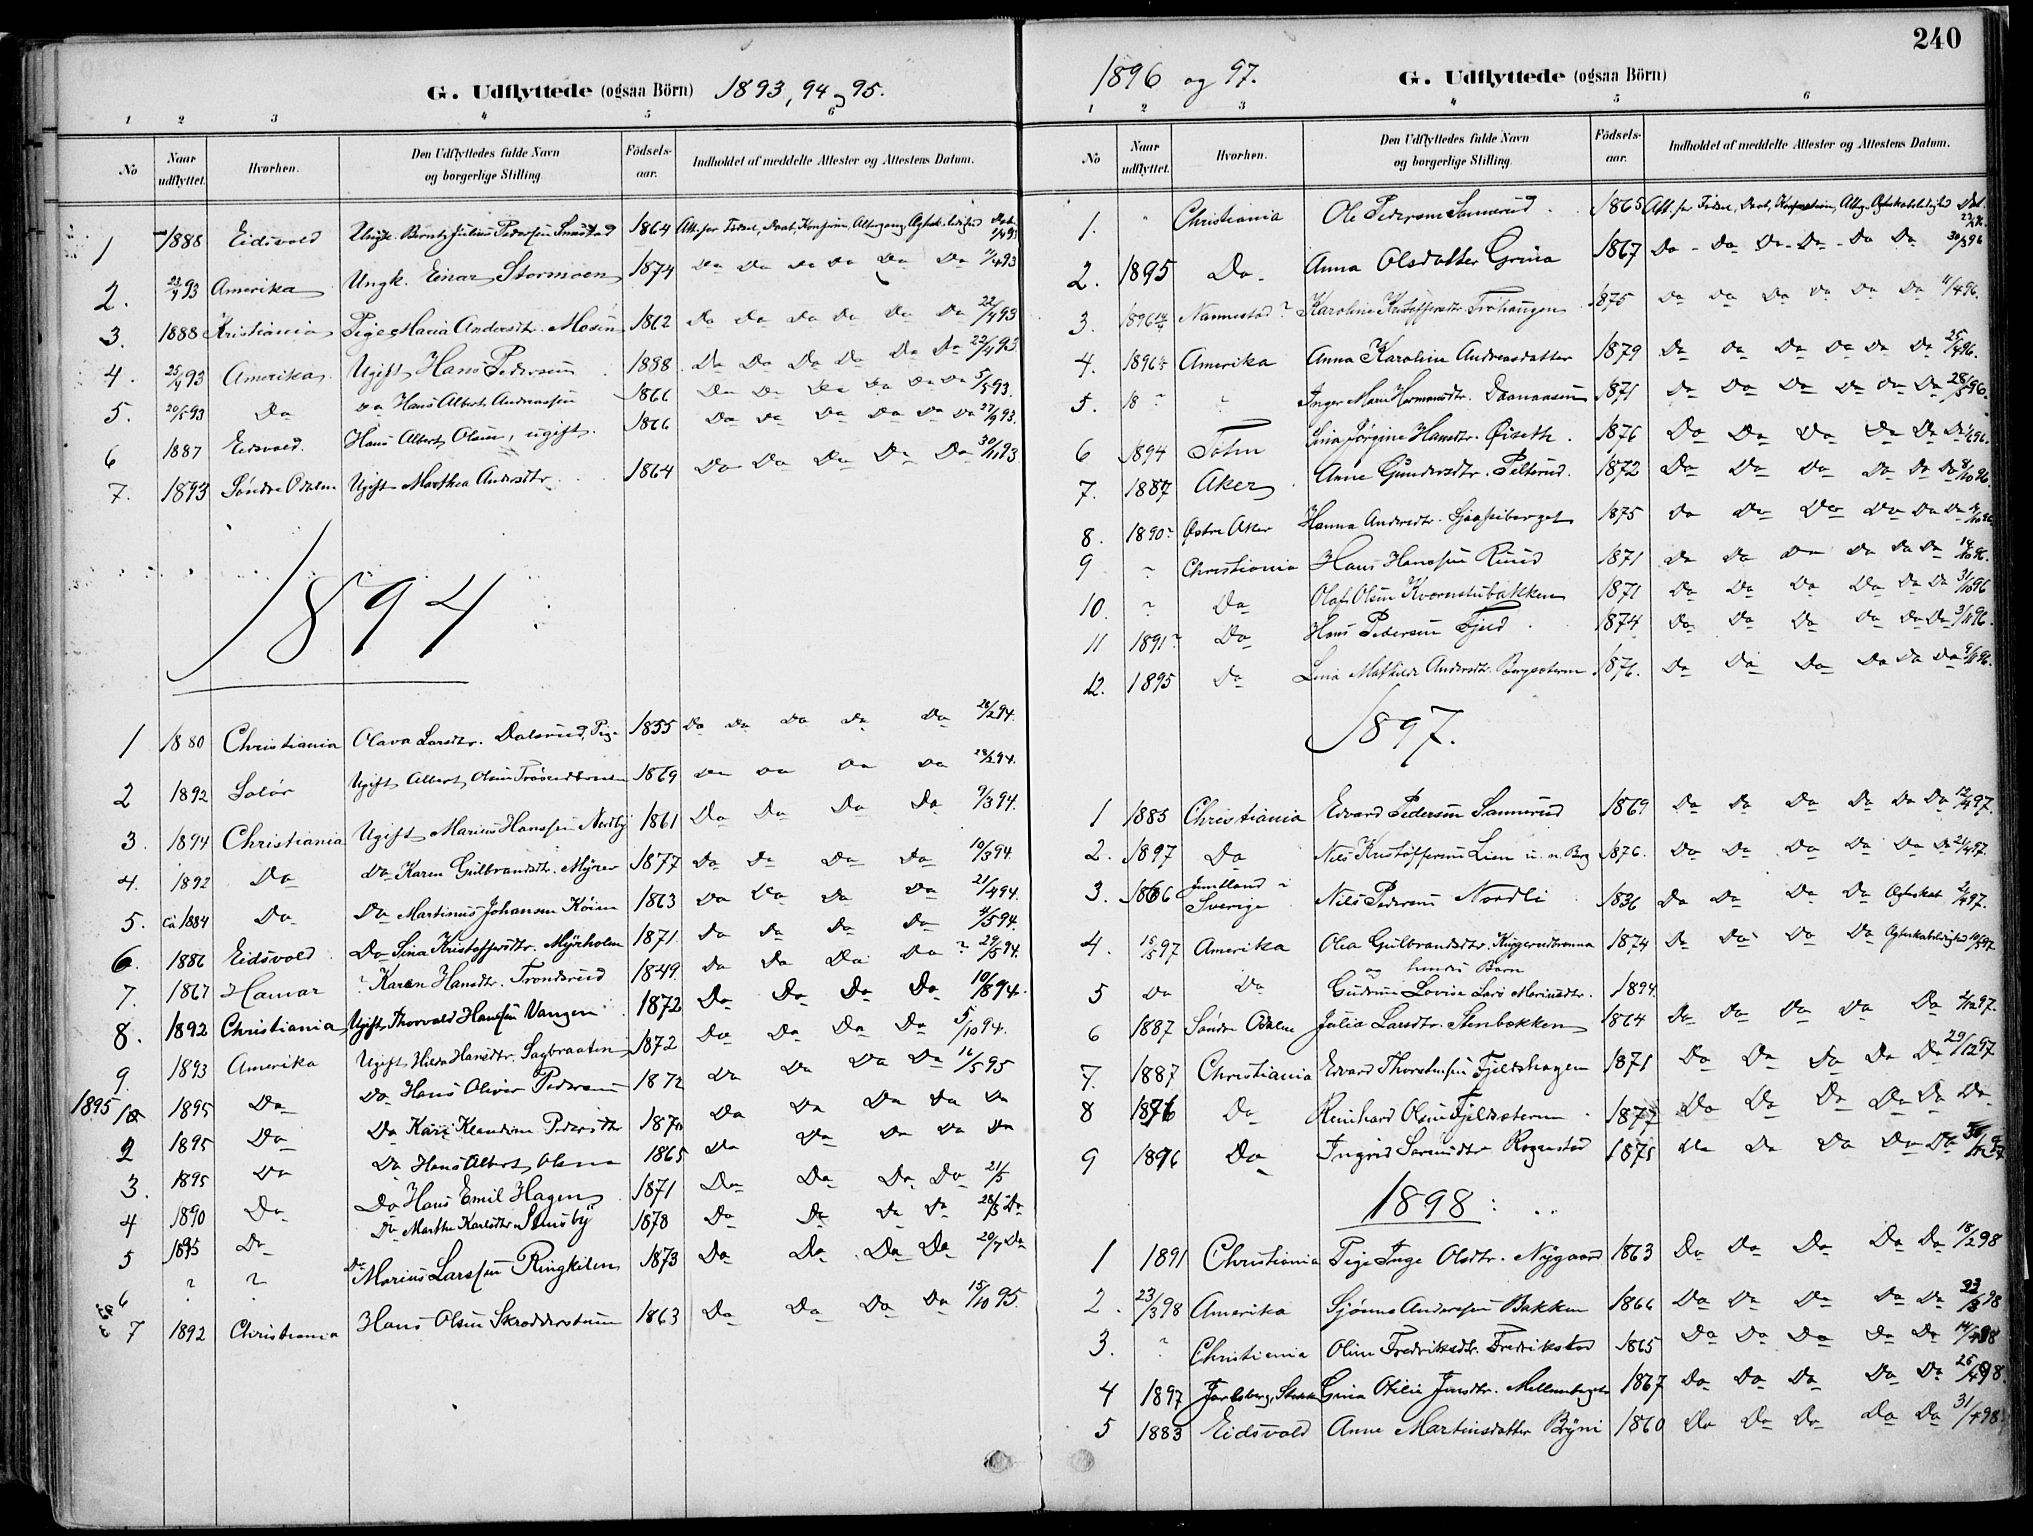 G. Udflyttede (ogsaa Börn) 1893, 94 og 95.
1 2 3 4 5 6
No Naar udflyttet. Hvorhen. Den Udflyttedes fulde Navn og borgerlige Stilling. Födsels-aar. Indholdet af meddelte Attester og Attestens Datum.
1 1888 Eidsvold Ungk. Bernt Julius Pedersen 1864 Att. for Födsel, Daab, Konfirm, Altergang,
2. 93 Amerika Ungk. Einar Stormoen 1874 Do Do Do Do Do Do 93
3. 1888 Kristiania Pige Maria Andersdtr. Mosen 1862 Do Do Do Do Do Do 22/4 93
4. 25/4 93 Amerika Ugift Hans Pedersen 1888 Do Do Do Do Do Do 22/4 93
5. 20/5 93 Do Do Hans Albert Andreassen 1866 Do Do Do Do Do Do 5/5 93.
6 1887 Eidsvold. Hans Albert Olsen, ugift. 1866 Do Do Do Do Do Do 27/9 93.
7. 1893 Söndre Odalen Ugift Marthea Andersdtr 1864 Do Do Do Do Do 30/11 93
1894
1 1880 Christiania Olava Larsdtr. Dalsrud, Pige 1855 Do Do Do Do Do 26/2 94.
2 1892 Solör Ugift Albert Olsen 1869 Do Do Do Do 28/2 94.
3. 1894 Christiania Ugift Marius Hanssen Nordby 1861 Do Do Do Do 9/3 94.
4. 1892 Do Do Karen Gulbrandsdtr. Myrer 1877 Do Do Do Do 10/3 94.
5. Ca 1884 Do Do Martinus Johansen Köien 1863 Do Do Do Do 21/4 94.
6. 1886 Eidsvold Do Lina Kristoffersdtr. Myrholen 1871 Do Do Do Do 4/5 94.
7. 1867 Hamar ? Karen Hansdtr. Trondsrud 1849. Do Do Do Do ? 29/5 94.
8. 1892 Christiania Ugift Thorvald Hanssen Vangen 1872 Do Do Do Do 10/8 94.
9. 1893 Amerika Ugift Hilda Hansdtr. Sagbraaten 1872 Do Do Do Do 5/10 94.
1895 1895 Do Do Hans Oliver Pedersen 1872 Do Do Do Do 16/5 95
2 1895 Do Do Kari Klaudine Pedersdtr Do Do Do Do Do
3. 1895 Do Do Hans Albert Olsen 1865 Do Do Do Do Do
4 1890 Do Do Hans Emil Hagen 1871 Do Do Do Do 21/5
5 1895 Do Do Marthe Karlsdtr. Stensby 1878 Do Do Do Do 28/5 Do
6 ? ? Do Marius Larssen Ringkilen 1873 Do Do Do Do 20/7 Do
7 1892 Christiania Hans Olsen Skrædderstuen 1863 Do Do Do Do 15/10 95.
240
1896 og 97. G. Udflyttede (ogsaa Börn)
1 2 3 4 5 6
No Naar udflyttet. Hvorhen. Den Udflyttedes fulde Navn og borgerlige Stilling. Födsels-aar. Indholdet af meddelte Attester og Attestens Datum.
1. " Christiania Ole Pedersen Sannerud 1865 Att. for Födsel, Daab, Konfirmation,
2. 1895 Do Anna Olsdatter Grina 1867 Do Do Do Do Do Do 30/3 96
3. 1896 Nannestad ? Karoline Kristoffersdtr 1875 Do Do Do Do Do Do 11/4 96.
4. 1896 Amerika Anna Karoline Andreasdatter 1879 Do Do Do Do Do Do 25/4 96.
5. 18 ? ? Inger Marie Hermansdtr. 1871 Do Do Do Do Do Do 28/5 96.
6 1894 Toten Lina Jörgine Hansdtr. Öiseth. 1876 Do Do Do Do Do Do 96.
7. 1887 Aker Anne Gundersdtr. Pelterud. 1872 Do Do Do Do Do Do 8/10 96.
8. 1890 ? Østre Aker Hanna Andersdtr. 1875 Do Do Do Do Do Do
9 ? Christiania Hans Hanssen Ruud 1871 Do Do Do Do Do Do 14/10 96.
10. ? Do Olaf Olsen Kvernstubakken 1871 Do Do Do Do Do Do 31/10 96
11 1891 ? Do Hans Pedersen Fjeld 1874 Do Do Do Do Do Do 3/11 96.
12. 1895 Do Lina Mathilde Andersdtr. Bergsæteren 1876. Do Do Do Do Do Do 96.
1897.
1 1885 Christiania Edvard Pedersen Sannerud 1869 Do Do Do Do Do Do 12/4 97.
2. 1897 Do Nils Kristoffersen Lien u. n. Berg 1876. Do Do Do Do Do Do 21/4 97.
3. 1866 Jemtland i Sverige Nils Pedersen Nordli 1836 Do Do Do Do Ægteskab 97.
4. 15/5 97 Amerika Olea Gulbrandsdtr. 1874 Do Do Do Do 97.
og hendes Barn
5 Do Do Gudrun Lovise Lars Marinusdtr. 1894.
6 1887 Söndre Odalen Julia Larsdtr. Stenbekken 1864 Do Do Do Do Do 97.
7. 1887 Christiania Edvard Thorstensen Fjeldshagen 1871 Do Do Do Do Do 29/12 97
8 1896 Do Reinhard Olsen Fjeldsæteren 1877 Do Do Do Do Do Do
9 1896 Do Ingrid Rognstad 1875 Do Do Do Do Do 30/12 97
1898:
1 1891 Christiania Pige Inge Olsdtr. Nygaard 1863 Do Do Do Do Do 18/2 98
2. 23/3 98 Amerika Andersen Bakken 1866 Do Do Do Do Do 23/3 98
3. ? Christiania Oline Fredriksdtr. Fredrikstad 1865 Do Do Do Do Do 14/4 98
4 1897 Jarlsberg, Gina Otilie Jensdtr. Mellemberget 1867 Do Do Do Do Do 26/4 98.
5 1883 Eidsvold Anne Martinsdatter Bryni 1860 Do Do Do Do Do 31/ 98